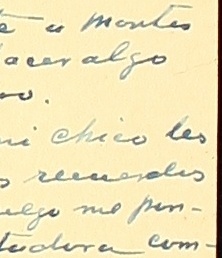 te a Montes
hacer algo
ro.
mi chico les
s recuerdos
luego me pon-
tadora com-